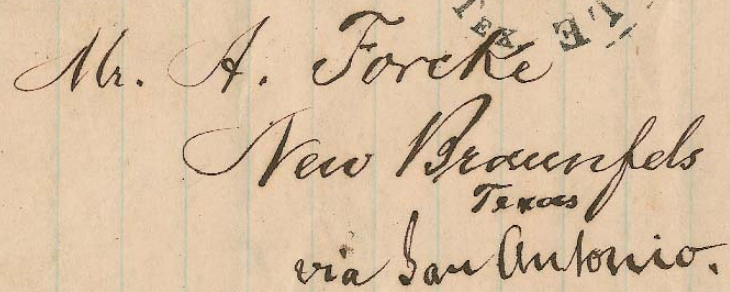 TEX
Mr. A. Forcke
New Braunfels
Texas
via San Antonio.